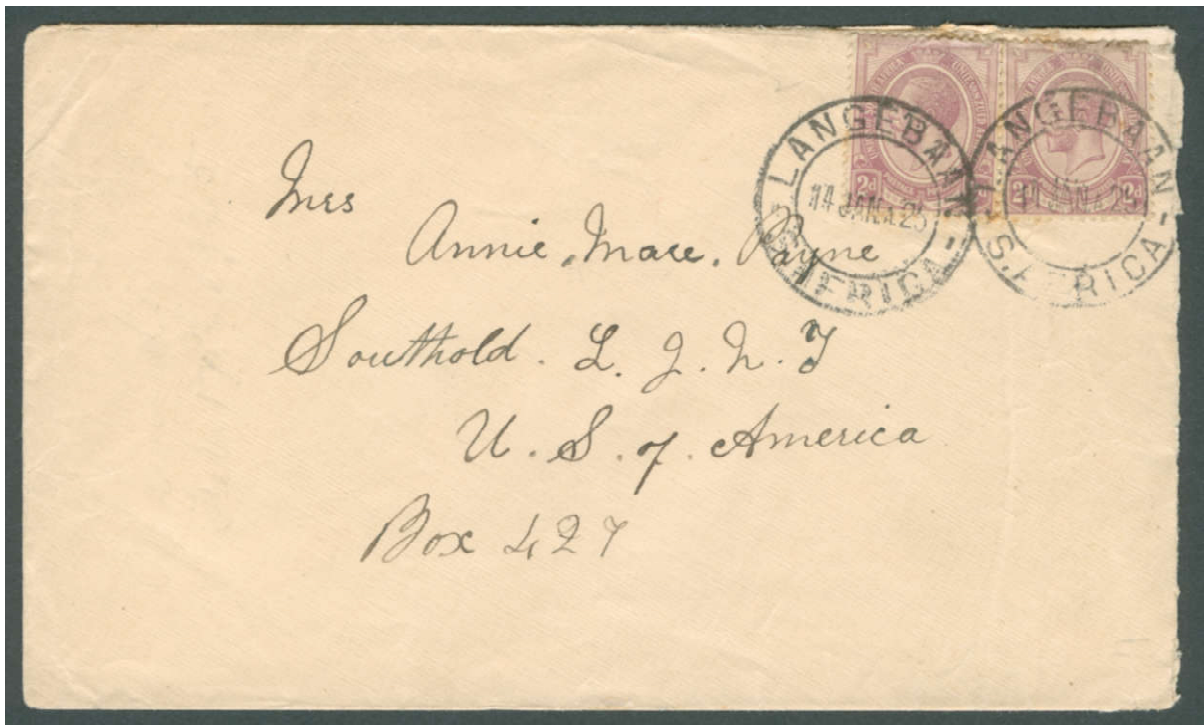 LANGEBAAN
14 JAN 25
S. AFRICA
LANGEBAAN
JAN 25
S. AFRICA
2d
2d 2d
Mrs
Annie. Mace. Payne
Southold. L. J. N. Y
U. S. of. America
Box 427